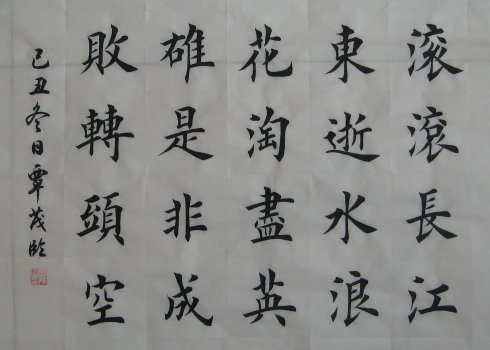 滚滾長江
東逝水浪
花淘盡英
雄是非成
敗轉頭空
己丑冬日覃茂臨